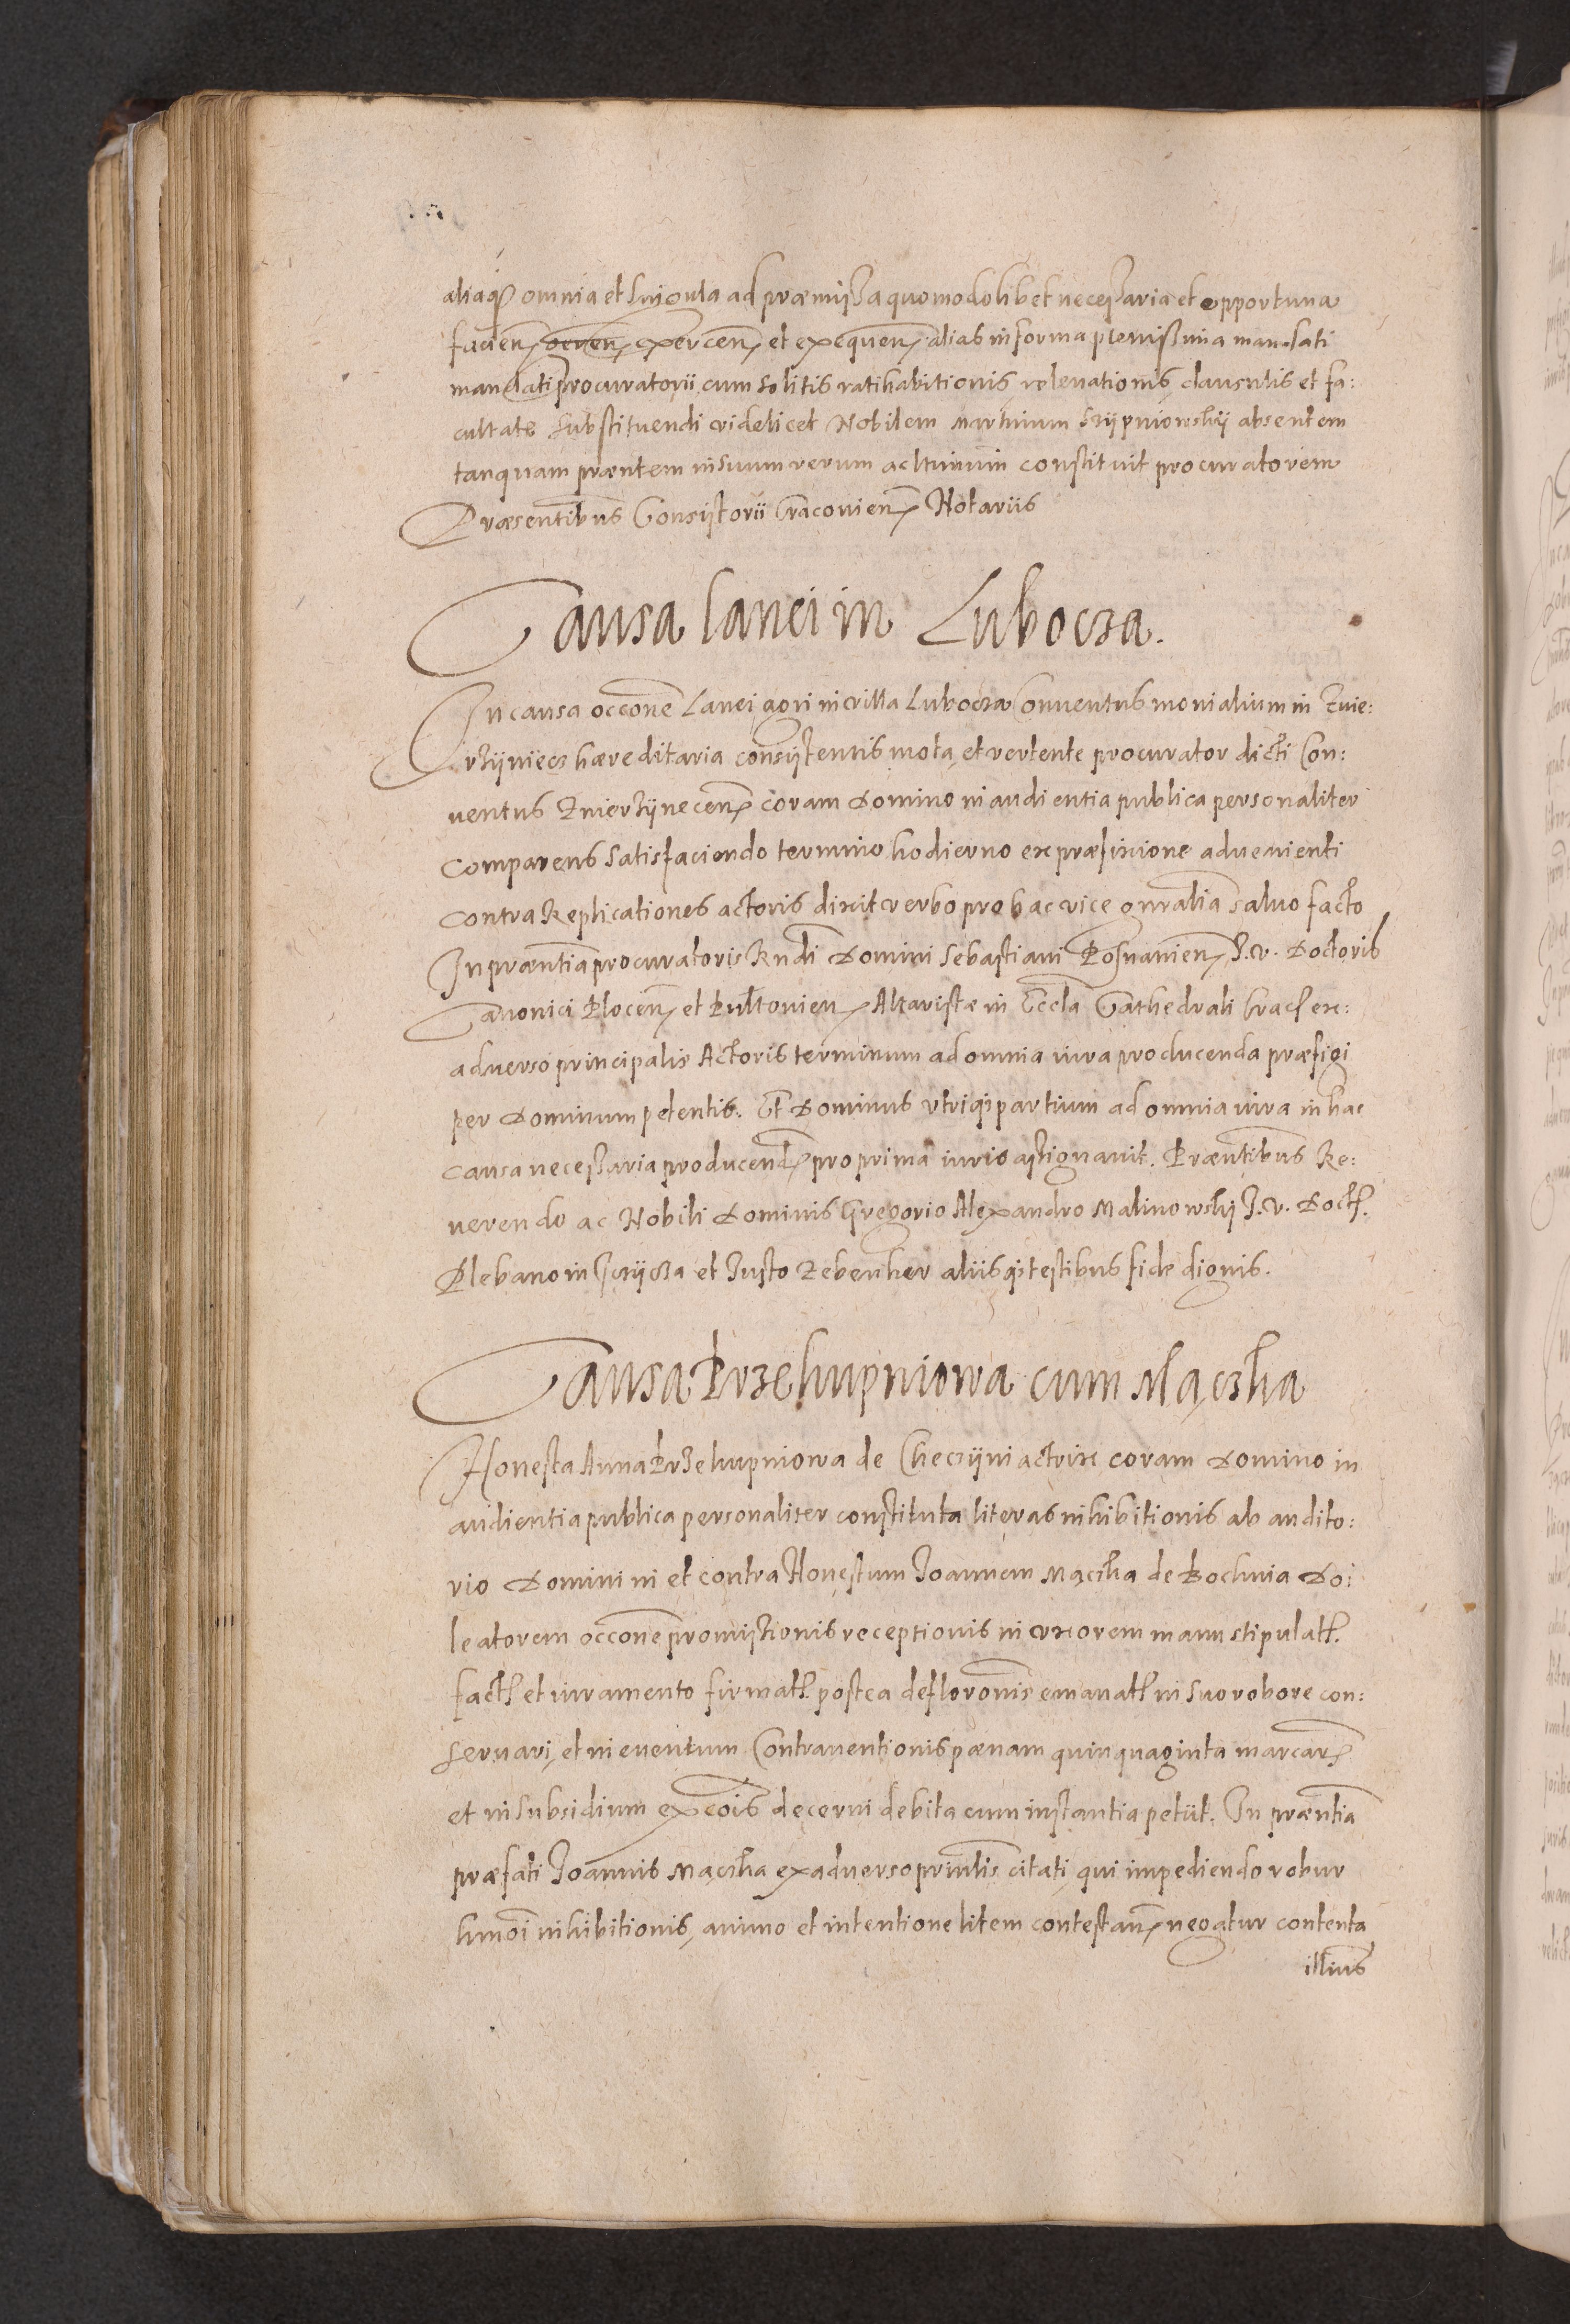 aliaq omnia et singula ad præmissa quomodolibet necessaria et opportuna
facien gerren exercen et exequen alias in forma plenissima mandati
mandati procuratorii cum solitis ratihabitionis relevationis clausulis et fa:
cultate substituendi videlicet Nobilem Martinum absentem
tanquam præntem in suum verum ac ltimum constituit procuratorem
Præsentibus Consistorii Cracovien Notariis
Causa lanei in Luborza.
In causa occone Lanei agri in villa Luborza Conventus monialium in Zwie:
rzÿniecz hæreditaria consistentis mota et vertente procurator dicti Con:
ventus Zwierzÿnecen coram Domino in audientia publica personaliter
comparens satisfaciendo termino hodierno ex præfixione advenienti
contra Replicationes actoris dixit verbo pro hac vice gnralia salvo facto
In præntia procuratoris Rndi Domini Sebastiani Posnanien J. v. Doctoris
Canonici Plocen et Pultovien Altaristæ in Eccla Cathedrali Crac ex:
adverso principalis Actoris terminum ad omnia iura producenda præfigi
per Dominum petentis. Et Dominus utriq partium ad omnia iura in hac
causa necessaria producend pro prima iuris assignavit. Præntibus Re:
verendo ac Nobili Dominis Gregorio Alexandro Malinowskÿ J. v. Doct.
Plebano in et Justo aliisq testibus fide dignis.
Causa Przekupniowa cum Mączka
Honesta Anna Przekupniowa de Checzÿni actrix coram Domino in
audientia publica personaliter constituta literas inhibitionis ab audito:
rio Domini in et contra Honestum Joannem Mączka de Bochnia Do:
leatorem occone promissionis receptionis in uxorem manu stipulat.
fact et iuramento firmat. postea defloronis emanat in suo robore con:
servari, et in eventum Contraventionis pænam quinquaginta marcar
et in subsidium excois decerni debita cum instantia petiit. In præntia
præfati Joannis Mączka ex adverso prinlis citati, qui impediendo robur
hmoi inhibitionis, animo et intentione litem contestan negatur contenta
illius